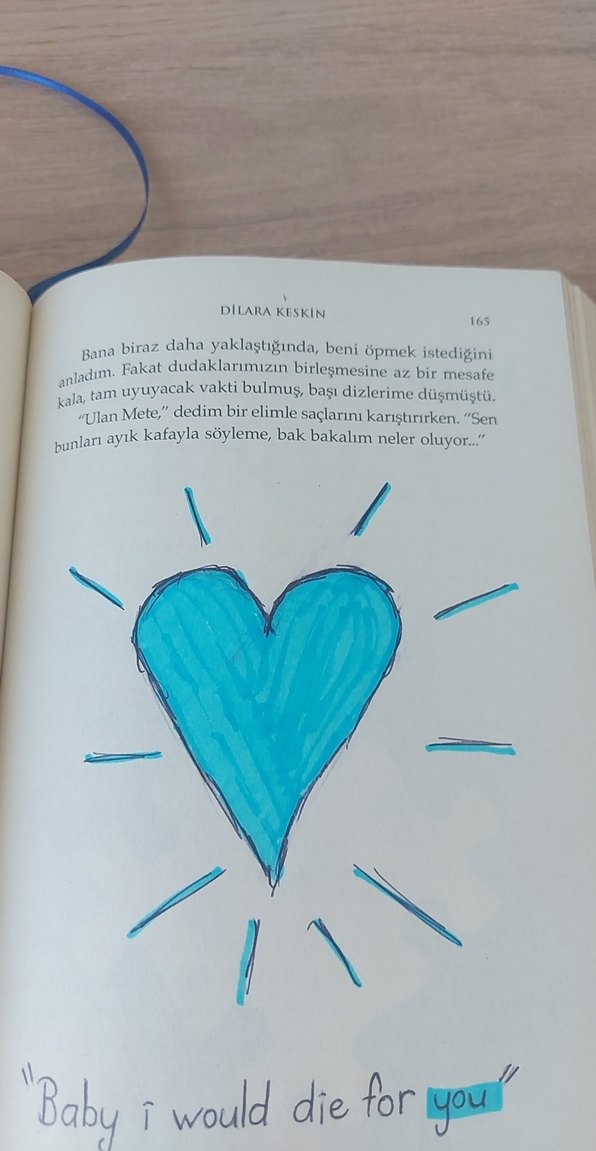 DİLARA KESKİN
165
Bana biraz daha yaklaştığında, beni öpmek istediğini
anladım. Fakat dudaklarımızın birleşmesine az bir mesafe
kala, tam uyuyacak vakti bulmuş, başı dizlerime düşmüştü.
“Ulan Mete,” dedim bir elimle saçlarını karıştırırken. “Sen
bunları ayık kafayla söyleme, bak bakalım neler oluyor...”
"Baby i would die for you"